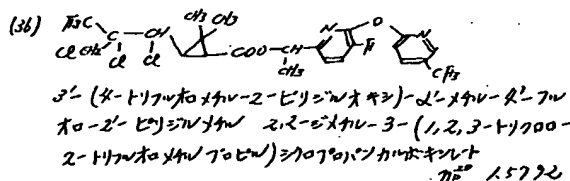 (36)
F3C
C
CH
CH3 CH3
ClCH2
Cl
Cl
COO-CH
CH3
N
O
F
N
CF3
3'-(4-トリフルオロメチル-2-ピリジルオキシ)-α'-メチル-4'-フル
オロ-2'-ピリジルメチル 2,2-ジメチル-3-(1,2,3-トリクロロ-
2-トリフルオロメチルプロピル)シクロプロパンカルボキシレート
nD20 1.5792